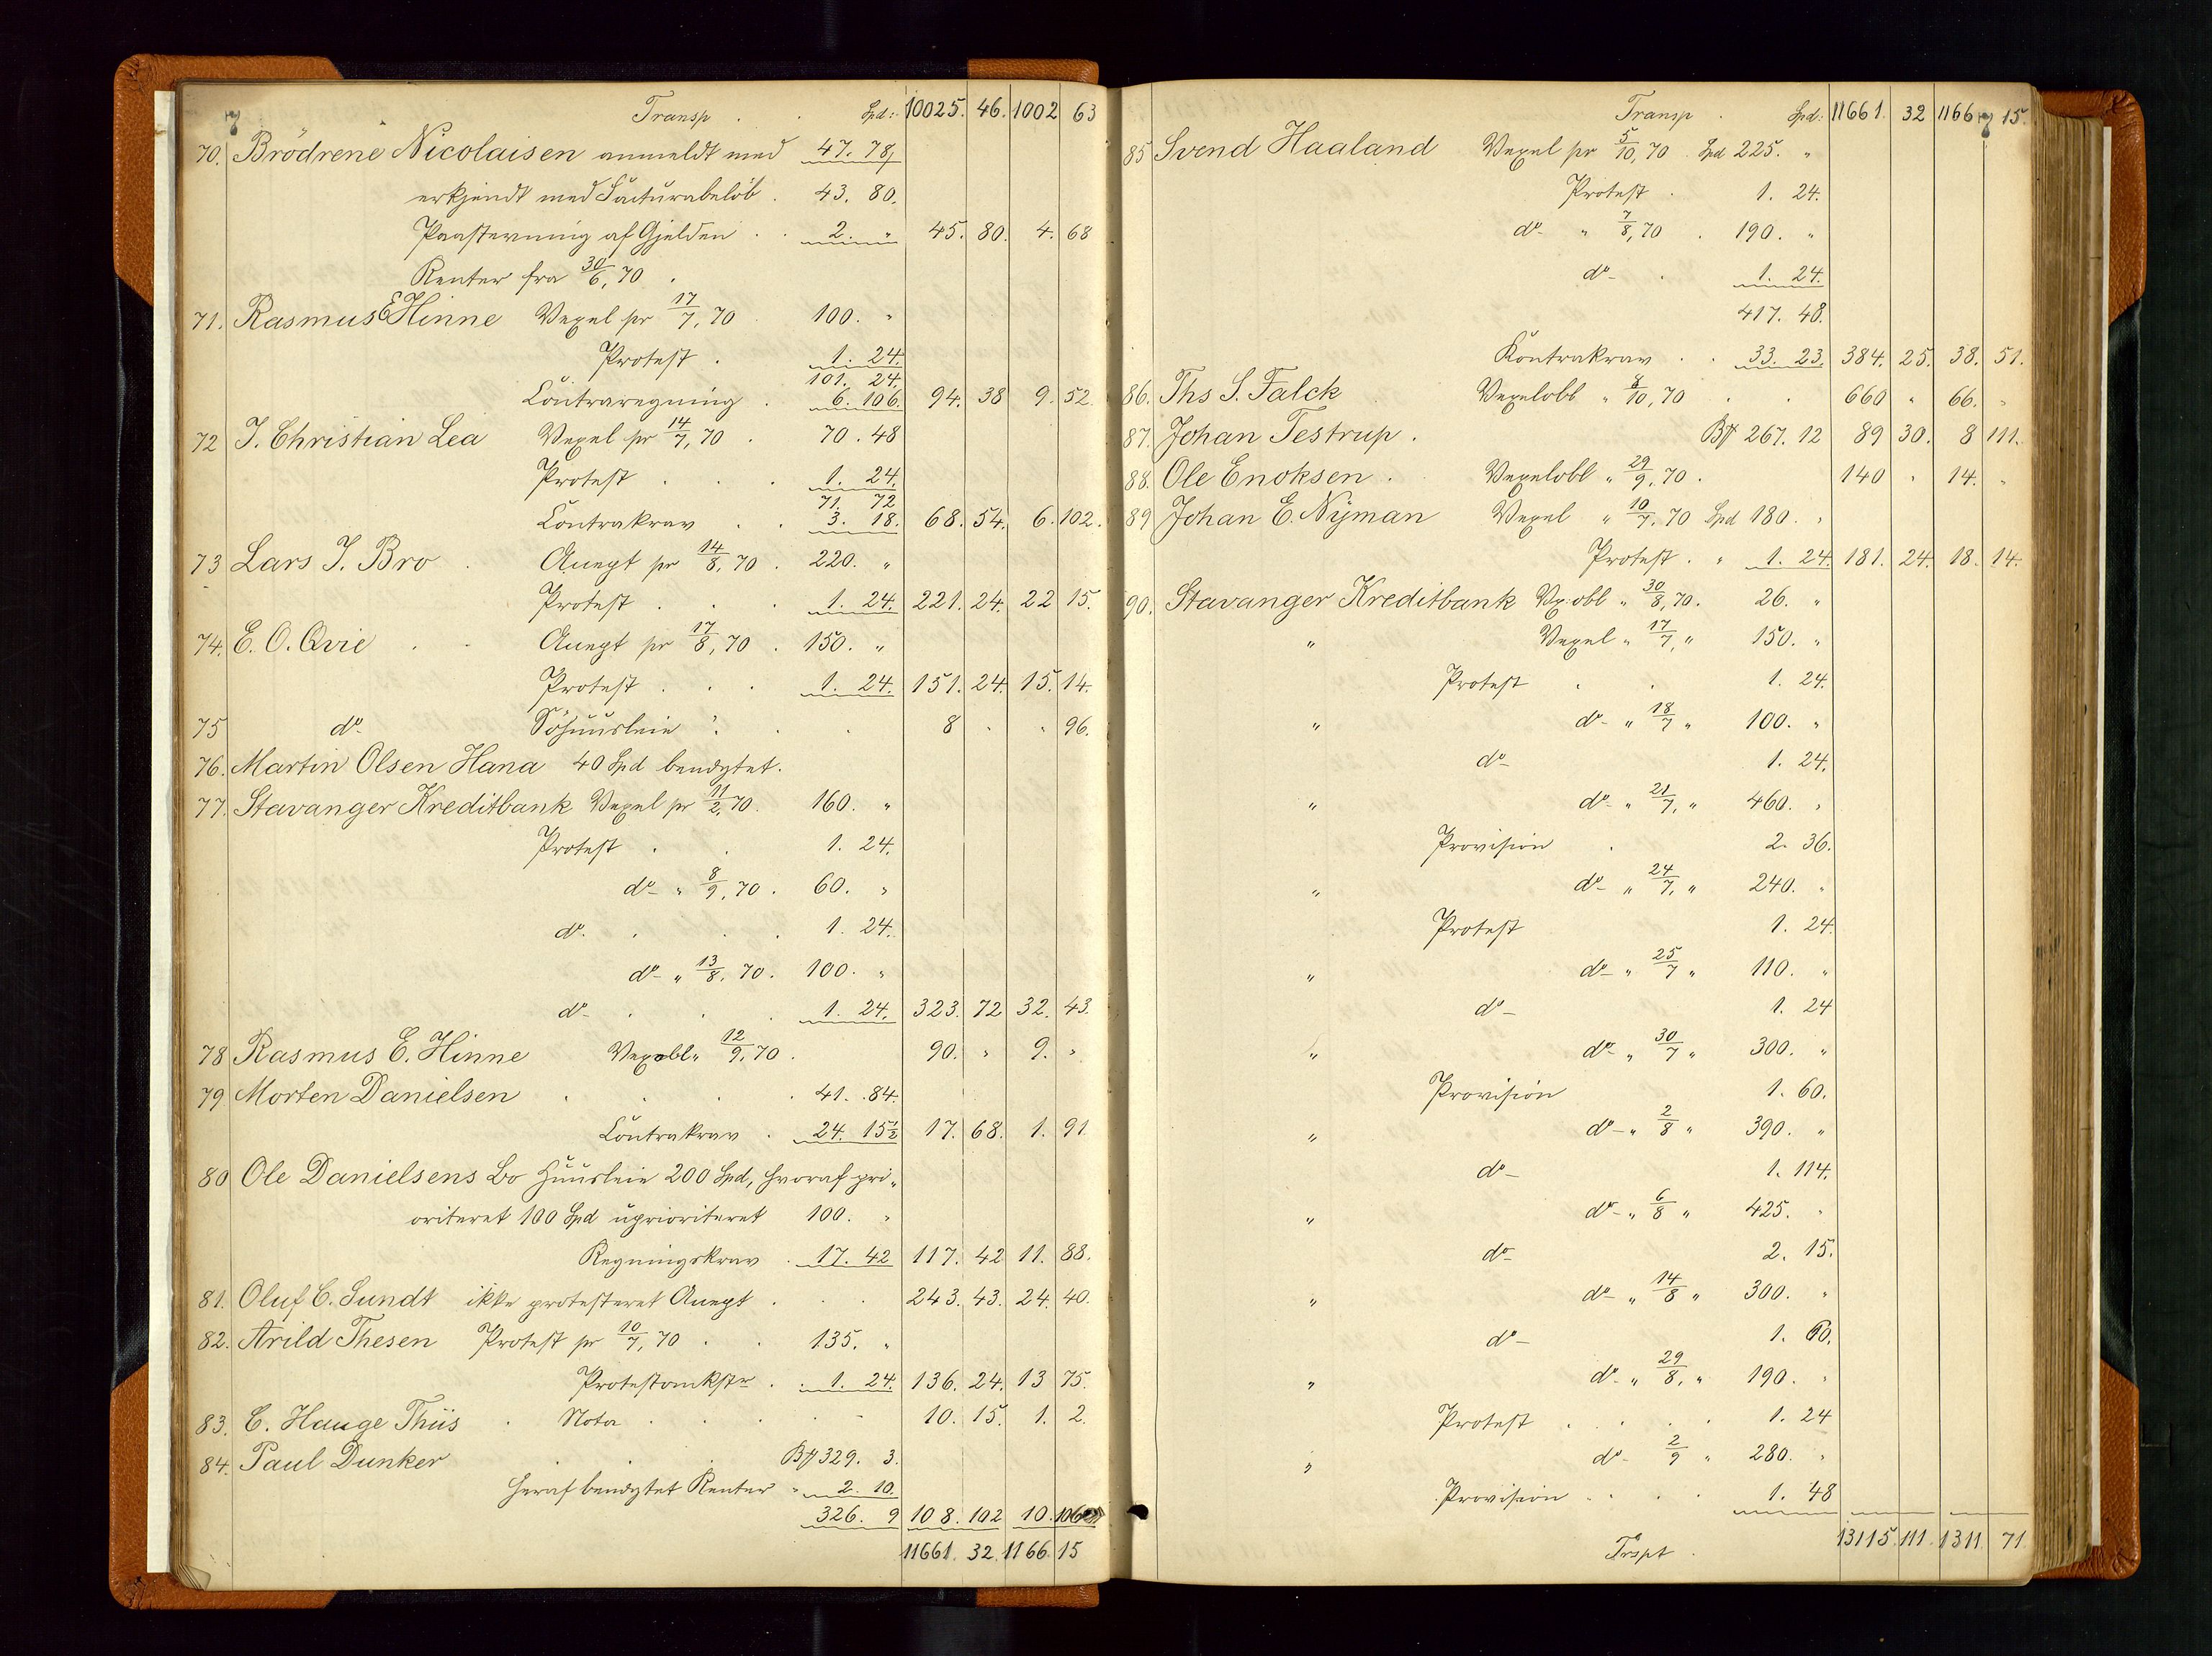 7 Transp . . Spd: 10025. 46. 1002 63
70. Brödrene Nicolaisen anmeldt med 47. 78
erkjendt med Facturabeløb . 43. 80.
Paastevning af Gjelden . . 2. " 45. 80. 4. 68
Renter fra 30/6, 70 .
71. Rasmus E Hinne Vexel pr 17/7, 70 100. "
Protest . 1. 24.
101. 24.
Contraregning . 6. 106. 94. 38 9. 52.
72 J. Christian Lea Vexel pr 14/7, 70 . 70. 48
Protest . . . 1. 24.
71. 72
Contrakrav . . 3. 18. 68. 54. 6. 102.
73 Lars J. Bro . Accept pr 14/8, 70 . 220. "
Protest . . . 1. 24. 221. 24. 22 15.
74. E. O. Qvie . . Accept pr 17/8, 70 . 150. "
Protest . . . 1. 24. 151. 24. 15. 14.
75 do Söhuusleie . . . 8 . . 96.
76. Martin Olsen Hana 40 Spd benyttet.
77. Stavanger Kreditbank Vexel pr 11/2, 70. 160. "
Protest . . 1. 24.
do " 8/9, 70 . 60. "
do . . . 1. 24.
do " 13/8, 70. 100. "
do . . . 1. 24. 323. 72 32. 43.
78 Rasmus E. Hinne Vexobl " 12/9, 70 . 90. " 9. "
79 Morten Danielsen . . . . 41. 84.
Contrakrav . 24. 15½ 17. 68. 1. 91
80 Ole Danielsens Bo Huusleie 200 Spd, hvoraf pri-
oriteret 100 Spd uprioriteret 100. "
Regningskrav . 17. 42 117. 42 11. 88.
81. Oluf C. Sundt ikke protesteret Accept . . . 243. 43. 24. 40.
82. Arild Thesen Protest pr 10/7, 70 . . 135. "
Protestomkstr . . 1. 24. 136. 24. 13 75.
83. C. Hauge Thiis . Nota . . . . . 10. 15. 1. 2.
84. Paul Dunker . . . 329. 3.
heraf benyttet Renter " 2. 10.
326. 9 108. 102 10. 106
11661. 32. 1166. 15
Transp . Spd: 11661. 32 1166 7 15.
85 Svend Haaland Vexel pr 5/10, 70 . Spd 225. "
Protest . 1. 24.
do " 7/8, 70 . 190. "
do . 1. 24.
417. 48.
Kontrakrav . . 33. 23. 384. 25. 38. 51.
86. Ths S. Falck . Vexelobl " 8/10, 70 . . 660 " 66. "
87. Johan Testrup . 267. 12 89 30. 8 111.
88. Ole Enoksen . Vexelobl " 29/9, 70 . 140 " 14. "
89 Johan E. Nyman Vexel " 10/7, 70 Spd 180. "
Protest . " 1. 24. 181. 24. 18. 14.
90. Stavanger Kreditbank Vx obl " 30/8, 70. 26. "
" Vexel " 17/7, " 150. "
Protest . . 1. 24.
" do " 18/7 " 100. "
do 1. 24.
" do " 21/7, " 460. "
Provision . 2. 36.
" do " 24/7, " 240. "
Protest 1. 24.
" do " 25/7 " 110. "
do 1. 24
" do " 30/7 " 300. "
Provision 1. 60.
" do " 2/8 " 390. "
do 1. 114.
" do " 6/8 " 425. "
do 2. 15.
" do " 14/8 " 300. "
do 1. 60.
" do " 29/8, " 190. "
Protest . . . . 1. 24
" do 2/9 " 280. "
Provision . . . . 1. 48
Trspt . 13115. 111. 1311. 71